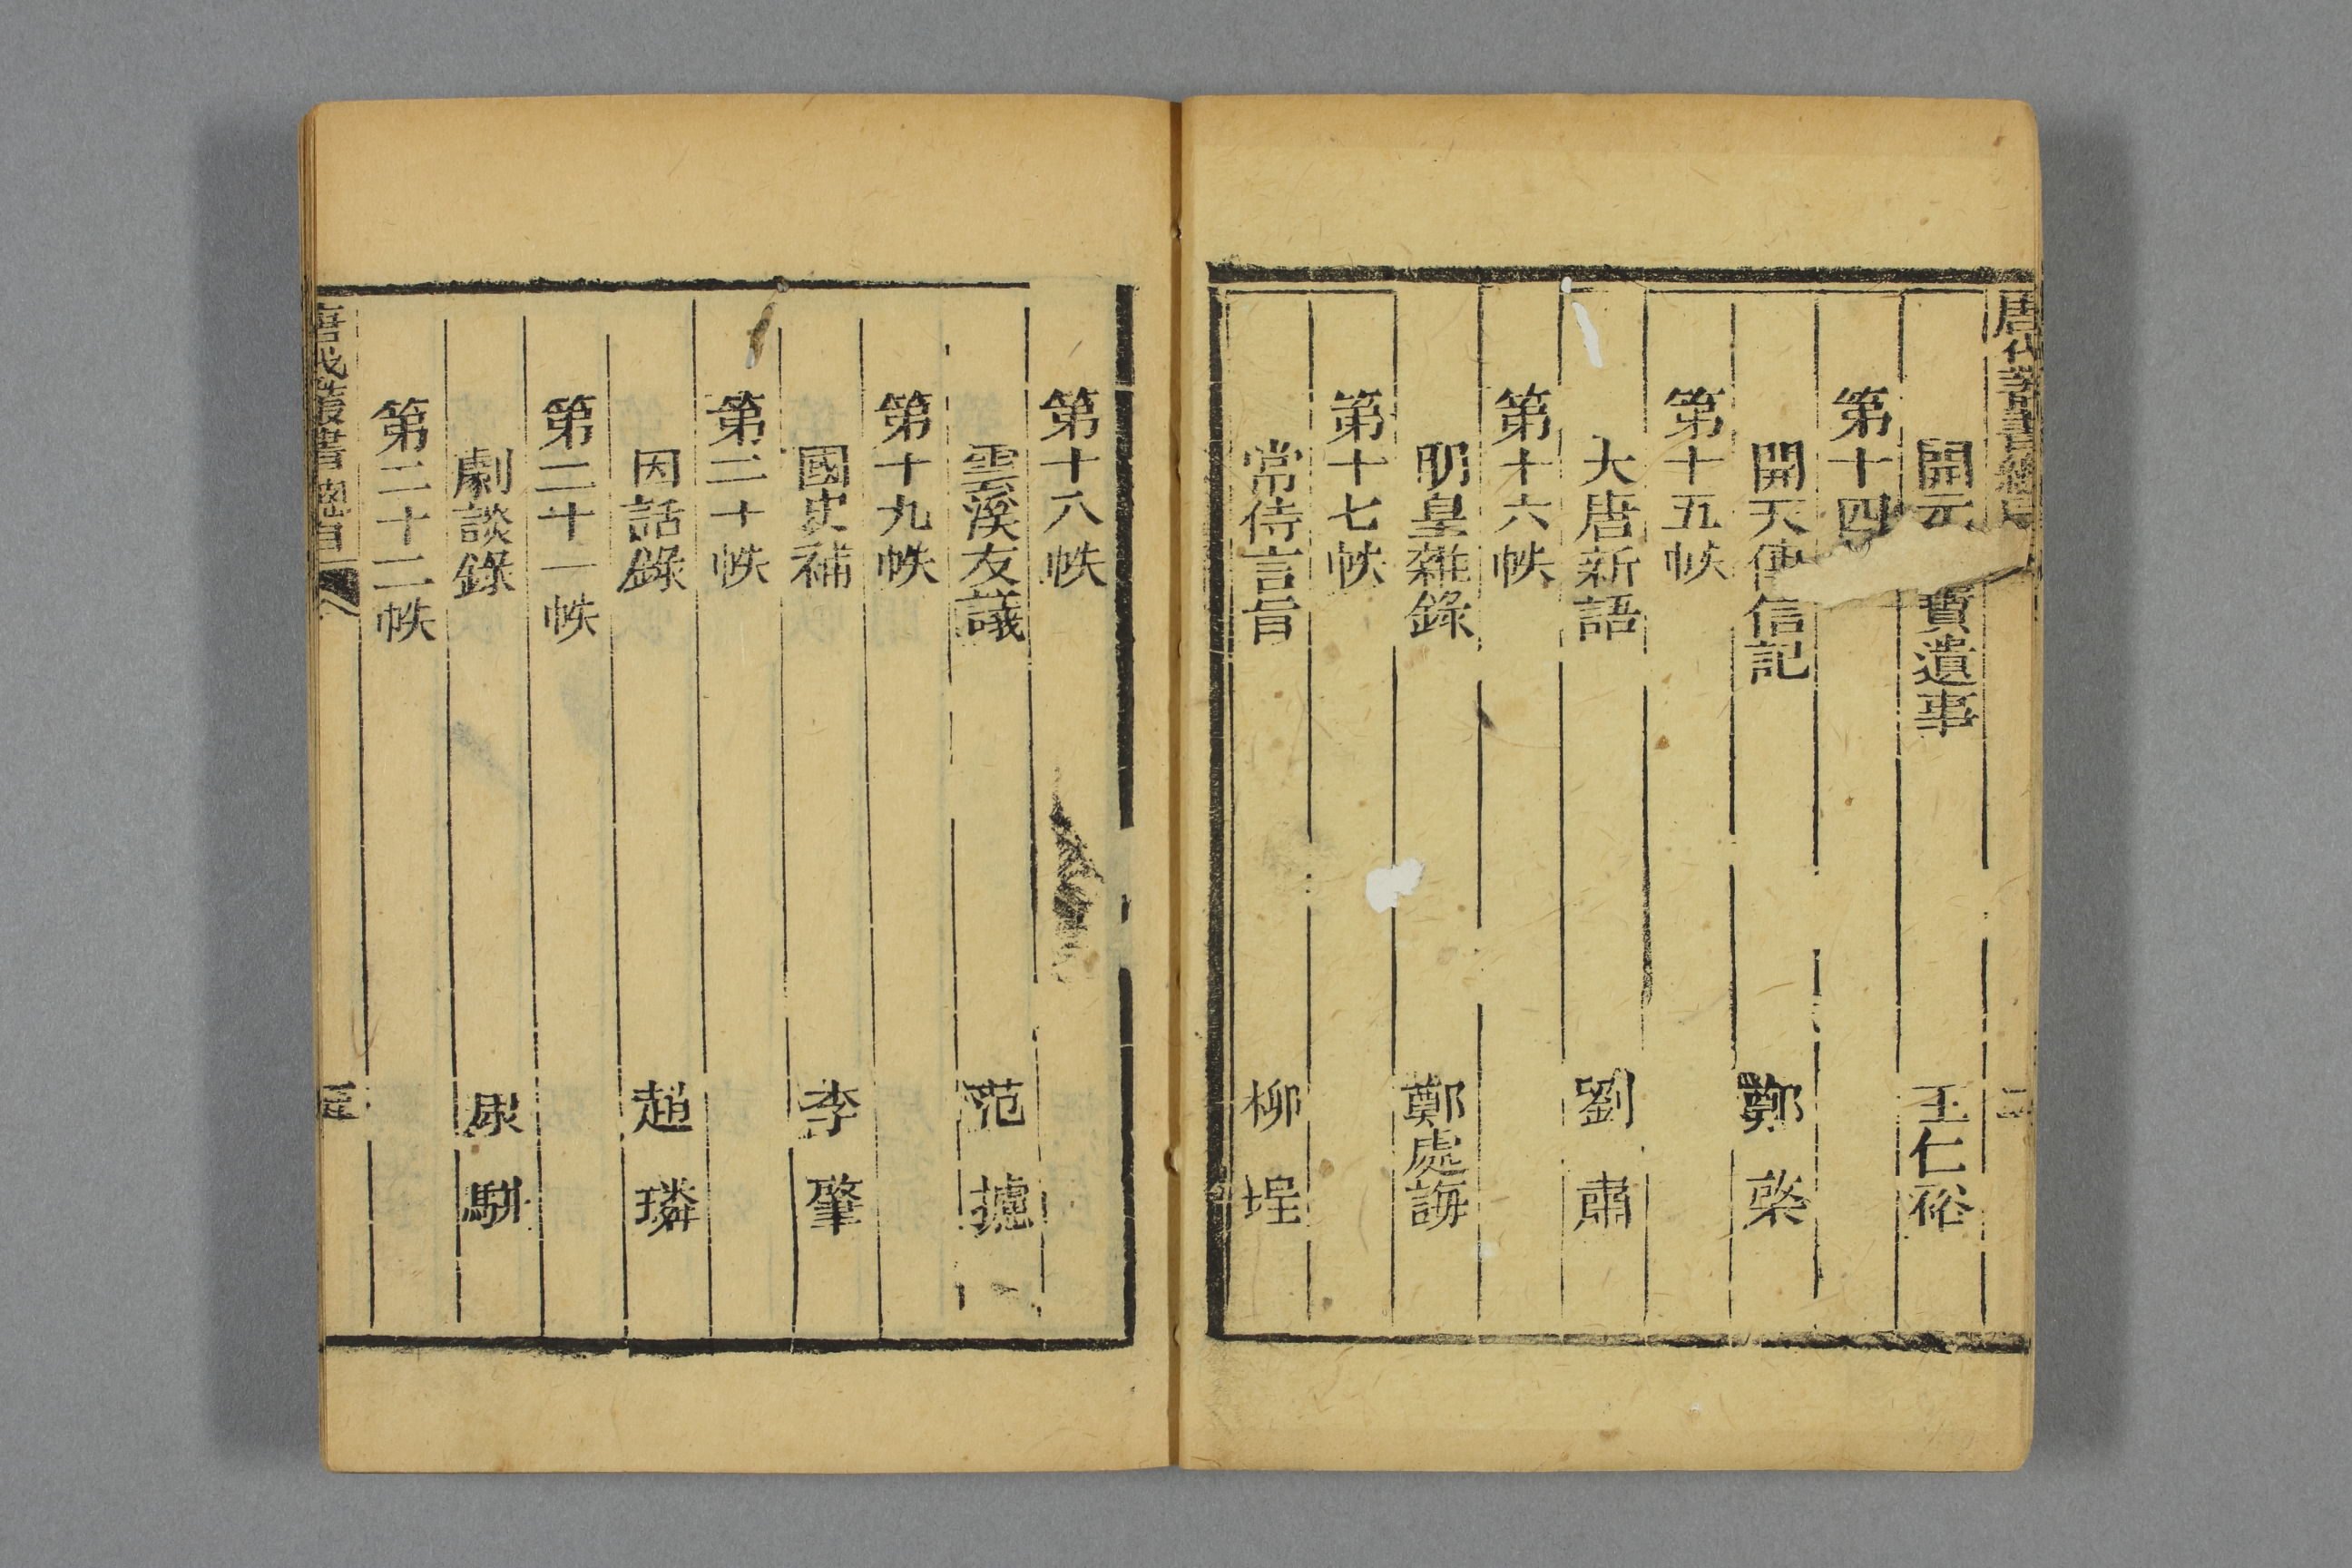 唐代叢書總目
二
開元 寶遺事 王仁裕
第十四
開天傳信記 鄭棨
第十五帙
大唐新語 劉肅
第十六帙
明皇雜錄 鄭處誨
第十七帙
常侍言旨 柳珵
第十八帙
雲溪友議 范攄
第十九帙
國史補 李肇
第二十帙
因話錄 趙璘
第二十一帙
劇談錄 康駢
第二十二帙
唐代叢書 總目
三